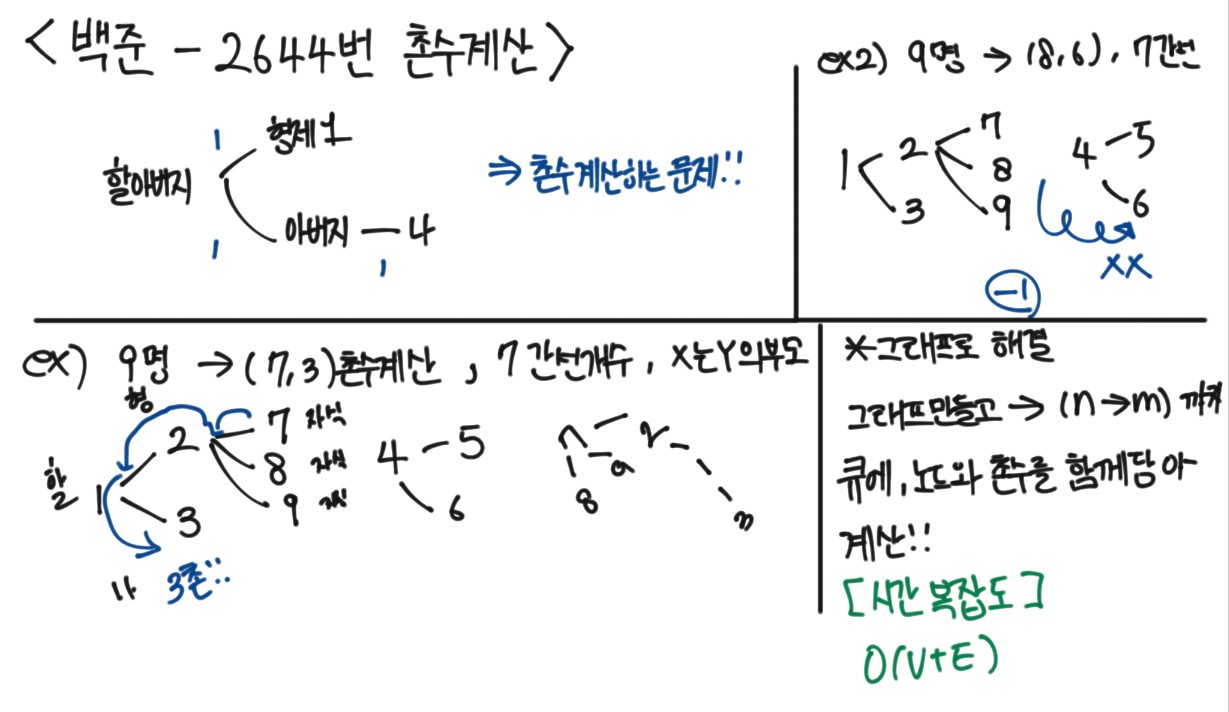 <백준 - 2644번 촌수계산>
할아버지
1
형제1
1
아버지 — 4
1
⇒ 촌수계산하는 문제!!
ex2) 9명 → (8,6), 7간선
1 2 7
8
3 9
4 5
6
XX
-1
ex) 9명 → (7,3)촌수계산, 7 간선개수, X는Y의부모
형
할
1 2 7 자식
8 자식
3 9 자식
4 - 5
6
n
8
m
3촌!!
*그래프로 해결
그래프만들고 → (n→m) 까지
큐에, 노드와 촌수를 함께담아
계산!!
[시간 복잡도]
O(V+E)